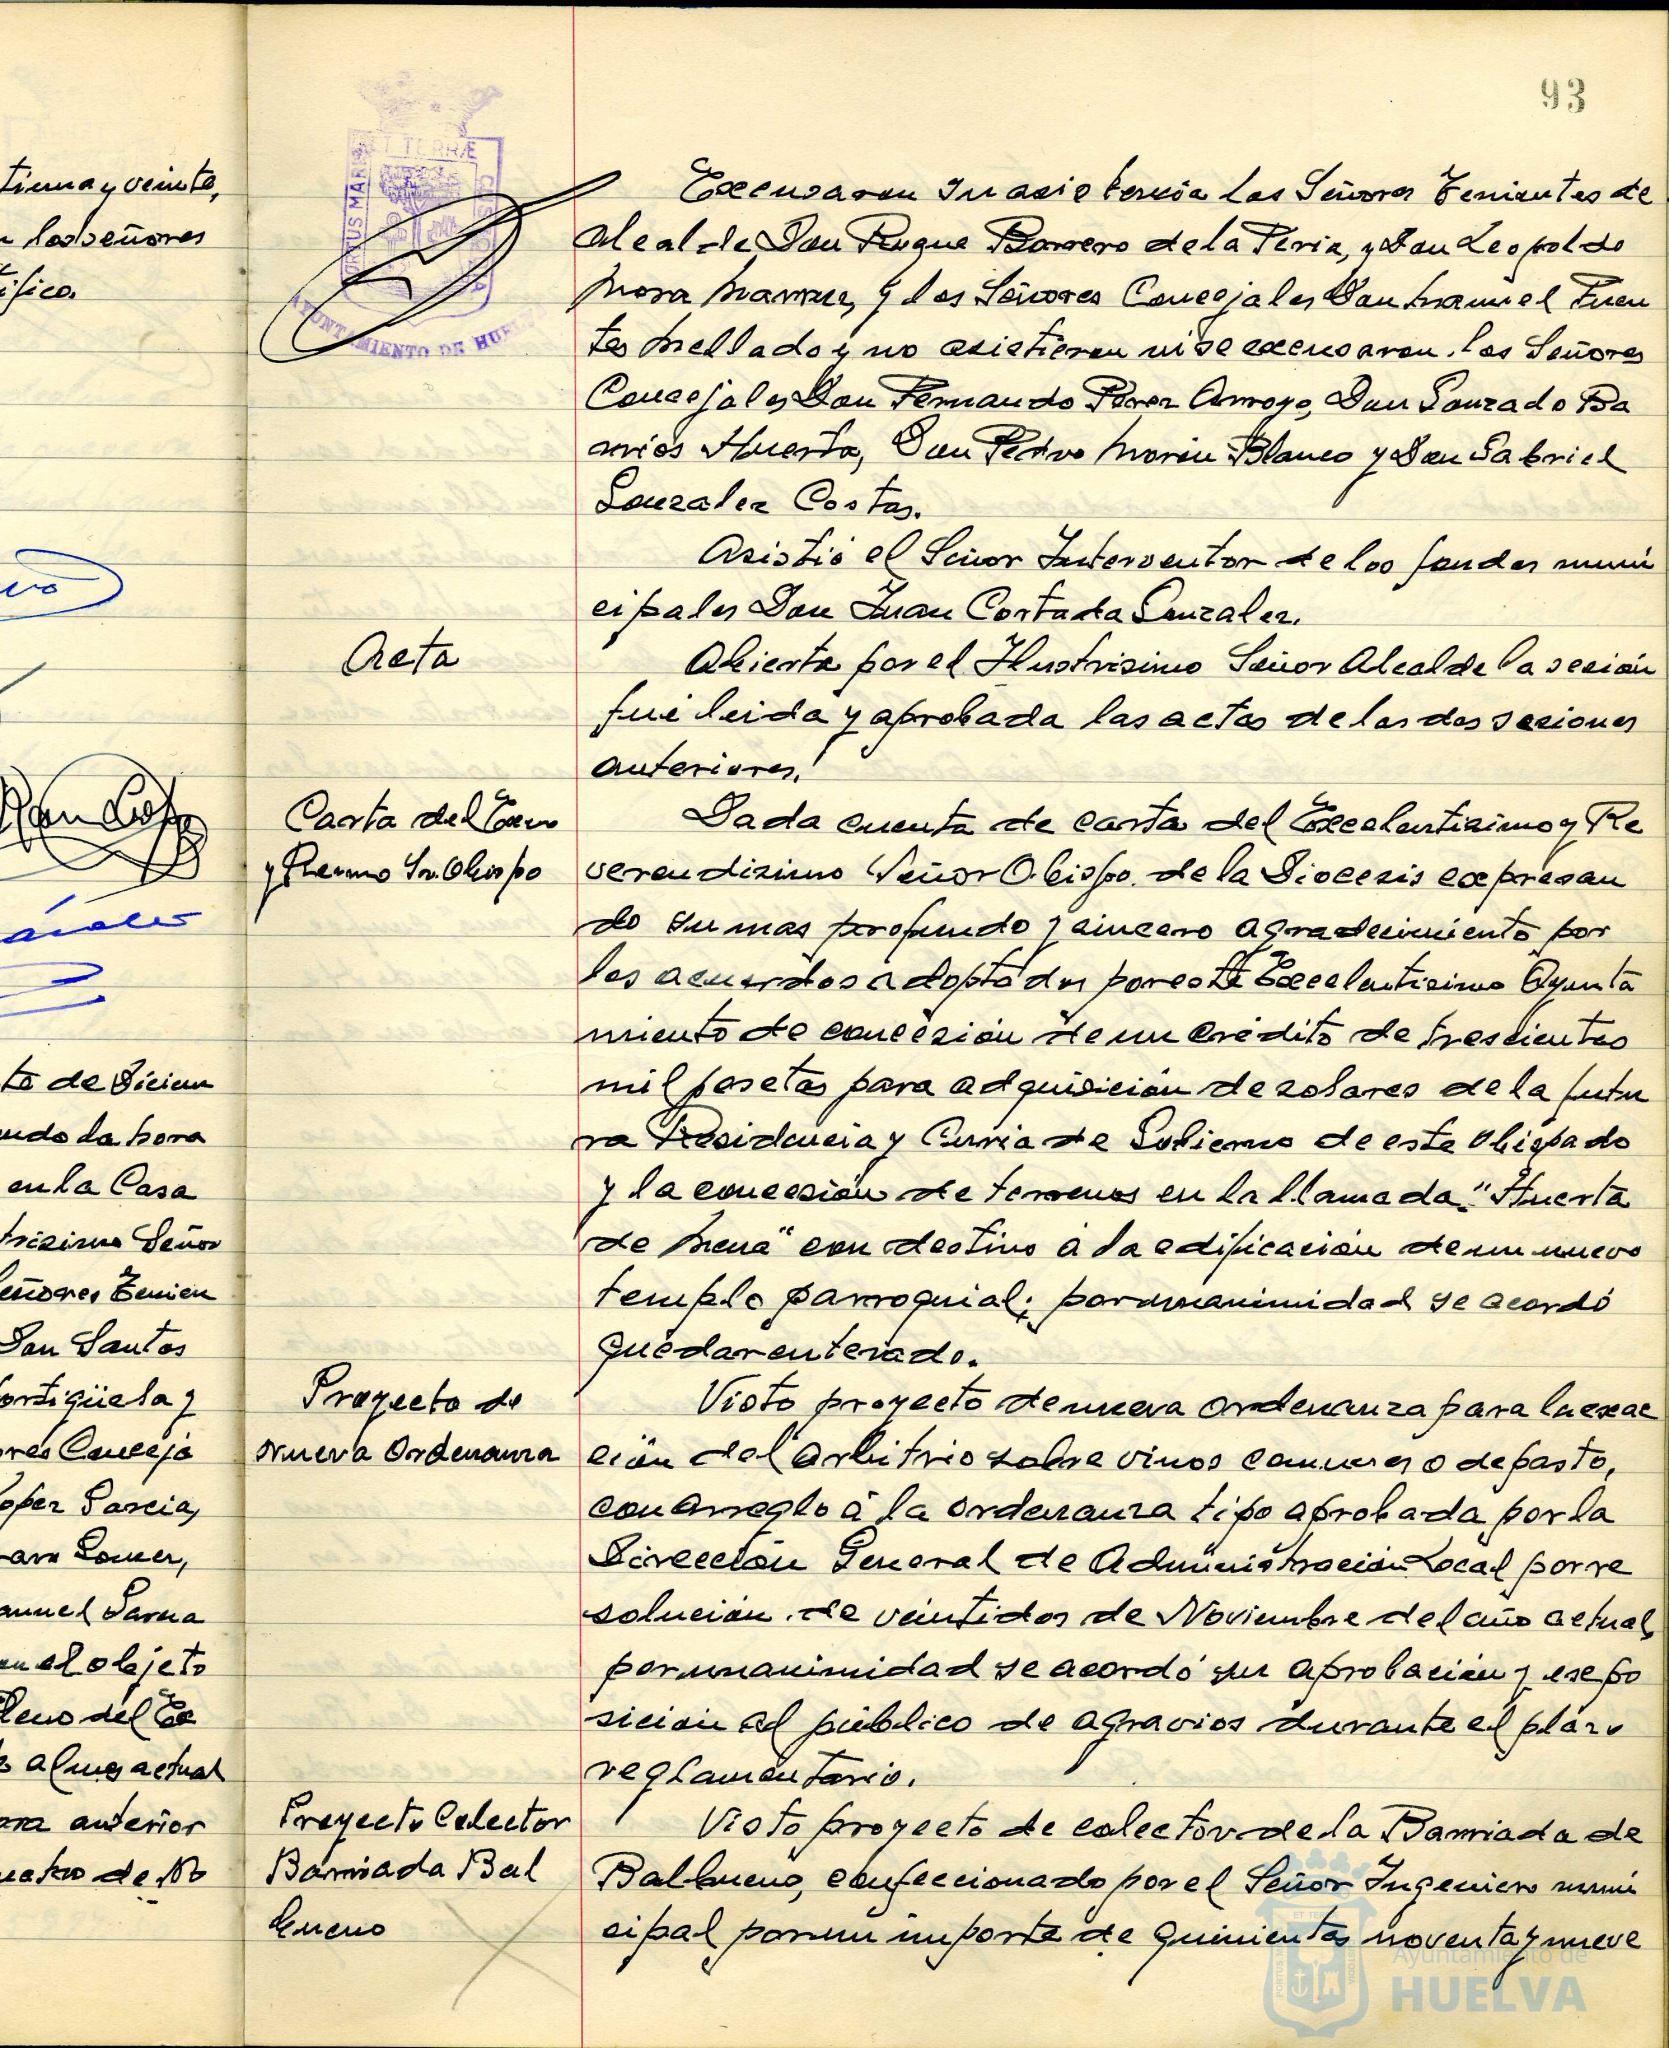 93
tima y veinte,
los señores
ifico.
to de Diciem
ndo la hora
en la Casa
trisimo Señor
eñores Tenien
Don Santos
ortigüela y
res Conceja
oper Garcia,
Gomez,
anuel Garcia
n el objeto
leno del Ex
al mes actual
anterior
de No
ET TERRAE
PORTUS MARIS
CUSTODIA
AYUNTAMIENTO DE HUELVA
Excusaron su asistencia los Señores Tenientes de
Alcalde Don Roque Barrero de la Feria, y Don Leopoldo
Mora y los Señores Concejales Don Manuel Fuen
tes Mellado y no asistieron ni se excusaron los Señores
Concejales Don Fernando Perez Arroyo, Don Gonzado Ba
rrios Huerta, Don Pedro Morón Blanco y Don Gabriel
Gonzalez Costas.
Asistió el Señor Interventor de los fondos muni
cipales Don Juan Cortada Gonzalez.
Acta
Abierta por el Ilustrisimo Señor Alcalde la sesión
fué leida y aprobada las actas de las dos sesiones
anteriores.
Carta del Excmo
y Revmo Sr. Obispo
Dada cuenta de carta del Excelentisimo y Re
verendisimo Señor Obispo de la Diocesis expresan
do su mas profundo y sincero agradecimiento por
los acuerdos adoptados por este Excelentisimo Ayunta
miento de concesión de un crédito de trescientas
mil pesetas para adquisición de solares de la futu
ra Residencia y Curia de Gobierno de este Obispado
y la concesión de terrenos en la llamada "Huerta
de Mena" con destino á la edificación de un nuevo
templo parroquial; por unanimidad se acordó
quedar enterado.
Proyecto de
nueva Ordenanza
Visto proyecto de nueva Ordenanza para la exac
ción del arbitrio sobre vinos comunes o de pasto,
con arreglo á la Ordenanza tipo aprobada por la
Dirección General de Administración Local por re
solución de veintidos de Noviembre del año actual,
por unanimidad se acordó su aprobación y expo
sición al público de agravios durante el plazo
reglamentario.
Proyecto Colector
Barriada Bal
bueno
Visto proyecto de colector de la Barriada de
Balbueno, confeccionado por el Señor Ingeniero muni
cipal por un importe de quinientas noventa y nueve
Ayuntamiento de
HUELVA